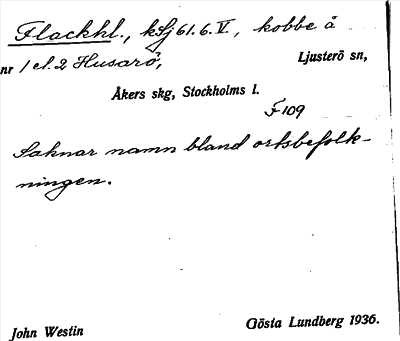 Flackhl., kSj 61.6.V, kobbe å
nr 1 el. 2 Husarö, Ljusterö sn,
Åkers skg, Stockholms l.
F 109
Saknar namn bland ortsbefolk-
ningen.
John Westin Gösta Lundberg 1936.